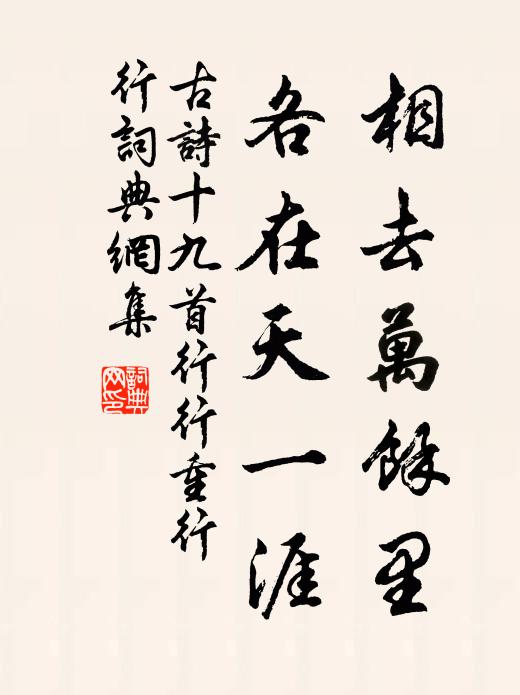 相去萬餘里
各在天一涯
古詩十九首行行重行
行詞典網集
詞典
网印